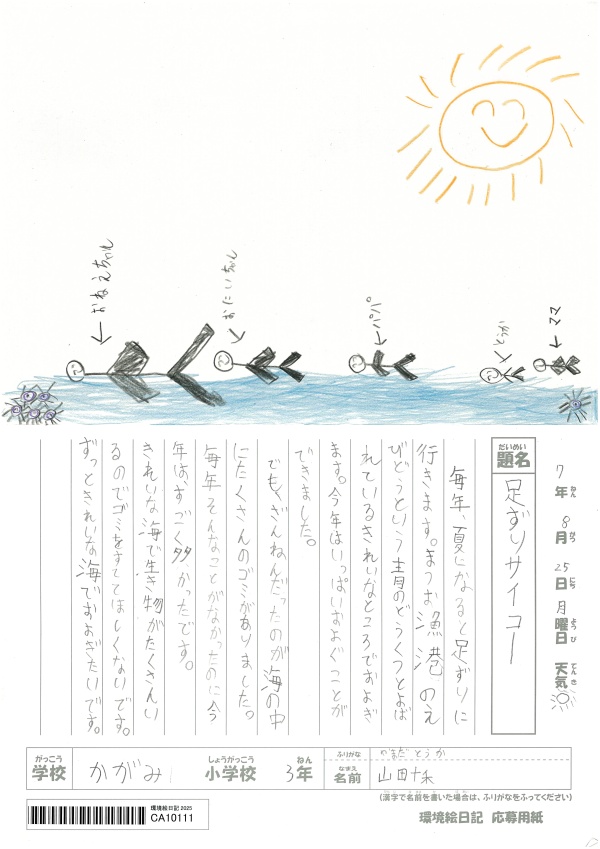 おねえちゃん
おにいちゃん
パパ
とうか
ママ
7年ねん 8月がつ 25日にち 月曜日ようび 天気てんき
題名だいめい 足ずりサイコー
毎年、夏になると足ずりに
行きます。まつお漁港のえ
びどうという青のどうくつとよば
れているきれいなところでおよぎ
ます。今年はいっぱいおよぐことが
できました。
でも、ざんねんだったのが海の中
にたくさんのゴミがありました。
毎年そんなことがなかったのに今
年は、すごく多かったです。
きれいな海で生き物がたくさんい
るのでゴミをすててほしくないです。
ずっときれいな海でおよぎたいです。
がっこう しょうがっこう ねん ふりがな やまだ とうか
学校 かがみ 小学校 3年 なまえ 名前 山田十
(漢字で名前を書いた場合は、ふりがなをふってください)
環境絵日記 2025
CA10111
環境絵日記 応募用紙